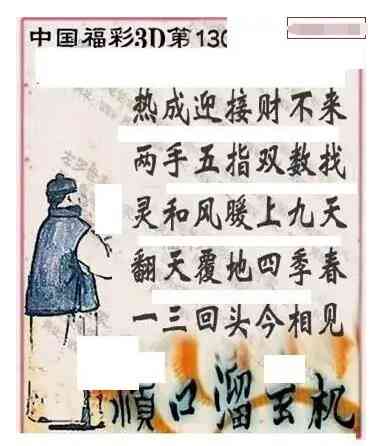 中国福彩3D第130
热成迎接财不来
两手五指双数找
灵和风暖上九天
翻天覆地四季春
一三回头今相见
順口溜玄机